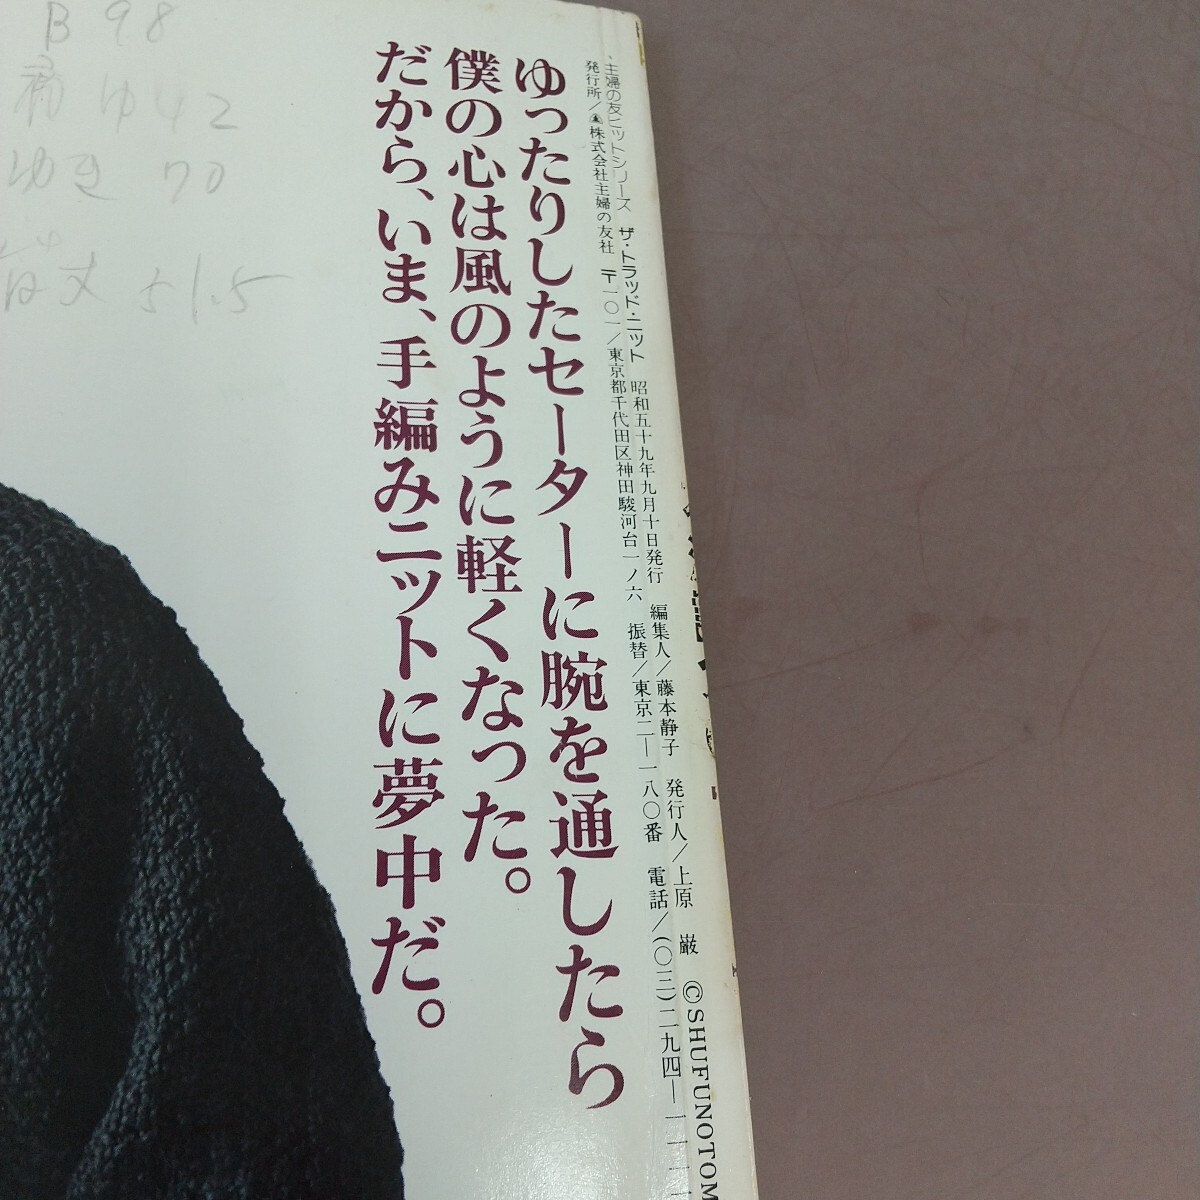 主婦の友ニットシリーズ ザ・トラッド・ニット 昭和五十九年九月十日発行 編集人/藤本静子 発行人/上原 巌 ©SHUFUNOTOM
発行所/株式会社主婦の友社 〒一〇一/東京都千代田区神田駿河台一ノ六 振替/東京二―一八〇番 電話/(〇三)二九四―一一一
ゆったりしたセーターに腕を通したら
僕の心は風のように軽くなった。
だから、いま、手編みニットに夢中だ。
B 98
肩ゆ42
ゆき 70
背丈 51.5